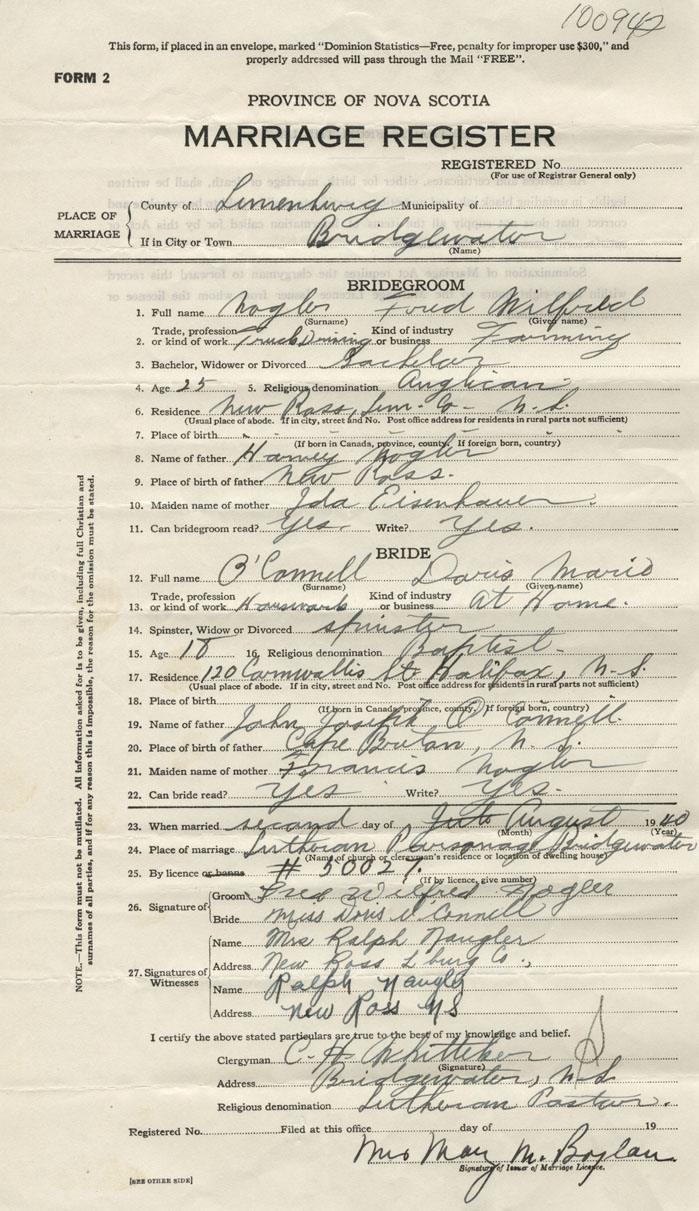 100942
This form, if placed in an envelope, marked "Dominion Statistics—Free, penalty for improper use $300," and
properly addressed will pass through the Mail "FREE".
FORM 2
PROVINCE OF NOVA SCOTIA
MARRIAGE REGISTER
REGISTERED No.
(For use of Registrar General only)
PLACE OF MARRIAGE
County of Lunenburg Municipality of
If in City or Town Bridgewater
(Name)
BRIDEGROOM
1. Full name Nogler Fred Wilfred
(Surname) (Given name)
2. Trade, profession or kind of work Truck Driving Kind of industry or business Farming
3. Bachelor, Widower or Divorced Bachelor
4. Age 25 5. Religious denomination Anglican
6. Residence New Ross, Lun. Co. N.S.
(Usual place of abode. If in city, street and No. Post office address for residents in rural parts not sufficient)
7. Place of birth
(If born in Canada, province, county. If foreign born, country)
8. Name of father Harvey Nogler
9. Place of birth of father New Ross.
10. Maiden name of mother Ida Eisenhauer.
11. Can bridegroom read? Yes Write? Yes.
BRIDE
12. Full name O'Connell Doris Marie
(Surname) (Given name)
13. Trade, profession or kind of work Housework Kind of industry or business At Home.
14. Spinster, Widow or Divorced spinster
15. Age 18 16. Religious denomination Baptist
17. Residence 120 Cornwallis St Halifax, N.S.
(Usual place of abode. If in city, street and No. Post office address for residents in rural parts not sufficient)
18. Place of birth
(If born in Canada, province, county. If foreign born, country)
19. Name of father John Joseph O'Connell.
20. Place of birth of father Cape Breton, N.S.
21. Maiden name of mother Francis Nogler
22. Can bride read? Yes Write? Yes.
23. When married second day of August 1940
(Month) (Year)
24. Place of marriage Lutheran Parsonage Bridgewater
(Name of church or clergyman's residence or location of dwelling house)
25. By licence or banns # 50021.
(If by licence, give number)
26. Signature of
Groom Fred Wilfred Nogler
Bride Miss Doris O Connell
27. Signatures of Witnesses
Name Mrs Ralph Naugler
Address New Ross L burg Co.,
Name Ralph Naugler
Address New Ross NS
I certify the above stated particulars are true to the best of my knowledge and belief.
Clergyman C. H. Whitteker
(Signature)
Address Bridgewater, N.S.
Religious denomination Lutheran Pastor.
Registered No. Filed at this office day of 19
Mrs May M. Boylan
Signature of Issuer of Marriage Licence.
[SEE OTHER SIDE]
NOTE.—This form must not be mutilated. All information asked for is to be given, including full Christian and
surnames of all parties, and if for any reason this is impossible, the reason for the omission must be stated.